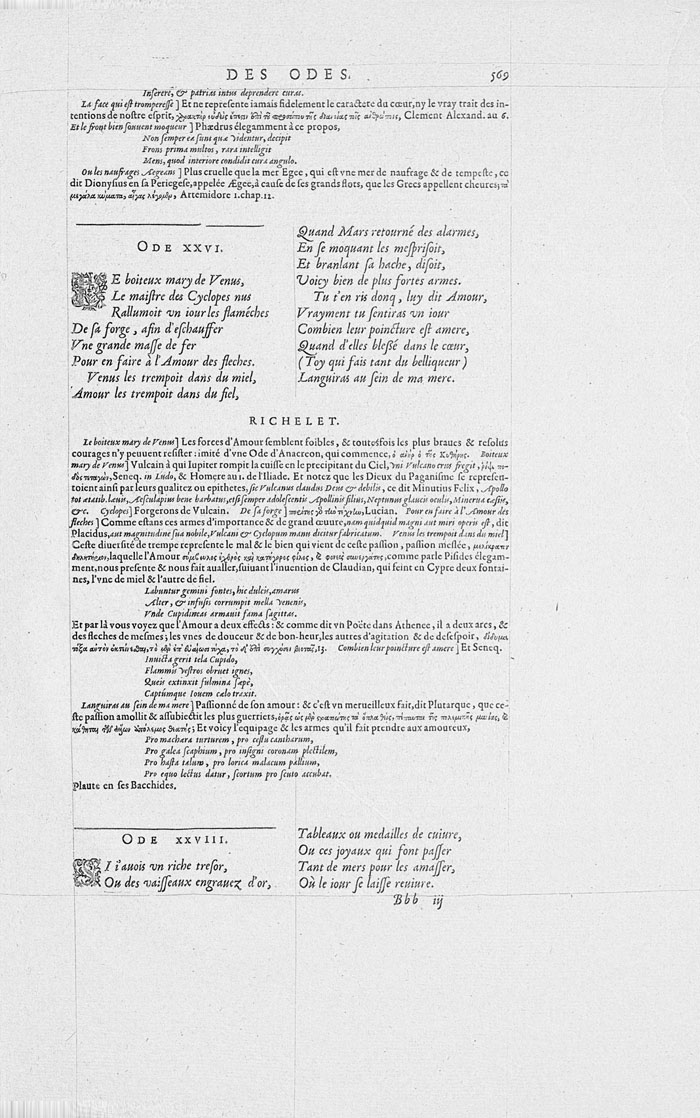 DES ODES. 569
Inserere, & patrias intus deprendere curas.
La face qui est tromperesse ] Et ne represente iamais fidelement le caractere du cœur, ny le vray trait des in-
tentions de nostre esprit, Clement Alexand. au 6.
Et le front bien souuent moqueur ] Phædrus élegamment à ce propos,
Non semper ea sunt quæ videntur, decipit
Frons prima multos, rara intelligit
Mens, quod interiore condidit cura angulo.
Ou les naufrages Ægeans ] Plus cruelle que la mer Egee, qui est vne mer de naufrage & de tempeste, ce
dit Dionysius en sa Periegese, appelée Ægee, à cause de ses grands flots, que les Grecs appellent cheures,
Artemidore 1. chap. 12.
ODE XXVI.
LE boiteux mary de Venus,
Le maistre des Cyclopes nus
Rallumoit vn iour les flaméches
De sa forge, afin d'eschauffer
Vne grande masse de fer
Pour en faire à l'Amour des fleches.
Venus les trempoit dans du miel,
Amour les trempoit dans du fiel,
Quand Mars retourné des alarmes,
En se moquant les mesprisoit,
Et branlant sa hache, disoit,
Voicy bien de plus fortes armes.
Tu t'en ris donq, luy dit Amour,
Vrayment tu sentiras vn iour
Combien leur poincture est amere,
Quand d'elles blessé dans le cœur,
(Toy qui fais tant du belliqueur)
Languiras au sein de ma mere.
RICHELET.
Le boiteux mary de Venus ] Les forces d'Amour semblent foibles, & toutesfois les plus braues & resolus
courages n'y peuuent resister : imité d'vne Ode d'Anacreon, qui commence, ὁ ἀνὴρ ὁ τῆς Κυθήρης. Boiteux
mary de Venus ] Vulcain à qui Iupiter rompit la cuisse en le precipitant du Ciel, vni Vulcano crus fregit, Seneq. in Ludo, & Homere au 1. de l'Iliade. Et notez que les Dieux du Paganisme se represen-
toient ainsi par leurs qualitez ou epithetes, sic Vulcanus claudus Deus & debilis, ce dit Minutius Felix, Apollo
tot ætatib. lauis, Æsculapius bene barbatus, etsi semper adolescentis Apollinis filius, Neptunus glaucis oculis, Minerua cæsiis,
&c. Cyclopes ] Forgerons de Vulcain. De sa forge ] Lucian. Pour en faire à l'Amour des
fleches ] Comme estans ces armes d'importance & de grand œuure, nam quidquid magni aut miri operis est, dit
Placidus, aut magnitudine sua nobile, Vulcani & Cyclopum manu dicitur fabricatum. Venus les trempoit dans du miel ]
Ceste diuersité de trempe represente le mal & le bien qui vient de ceste passion, passion meslée,
laquelle l'Amour comme parle Pisides élegam-
ment, nous presente & nous fait aualler, suiuant l'inuention de Claudian, qui feint en Cypre deux fontai-
nes, l'vne de miel & l'autre de fiel.
Labuntur gemini fontes, hic dulcis, amarus
Alter, & infusis corrumpit mella venenis,
Vnde Cupidineas armauit fama sagittas.
Et par là vous voyez que l'Amour a deux effects : & comme dit vn Poëte dans Athenee, il a deux arcs, &
des fleches de mesmes ; les vnes de douceur & de bon-heur, les autres d'agitation & de desespoir,
13. Combien leur poincture est amere ] Et Seneq.
Inuicta gerit tela Cupido,
Flammis vestros obruet ignes,
Queis extinxit fulmina sæpe,
Captúmque Iouem cælo traxit.
Languiras au sein de ma mere ] Passionné de son amour : & c'est vn merueilleux fait, dit Plutarque, que ce-
ste passion amollit & assubiectit les plus guerriers,
Et voicy l'equipage & les armes qu'il fait prendre aux amoureux,
Pro machæra turturem, pro cestu cantharum,
Pro galea scaphium, pro insigni coronam plectilem,
Pro hasta talum, pro lorica malacum pallium,
Pro equo lectus datur, scortum pro scuto accubat.
Plaute en ses Bacchides.
ODE XXVIII.
SI i'auois vn riche tresor,
Ou des vaisseaux engrauez d'or,
Tableaux ou medailles de cuiure,
Ou ces joyaux qui font passer
Tant de mers pour les amasser,
Où le iour se laisse reuiure.
Bbb iij